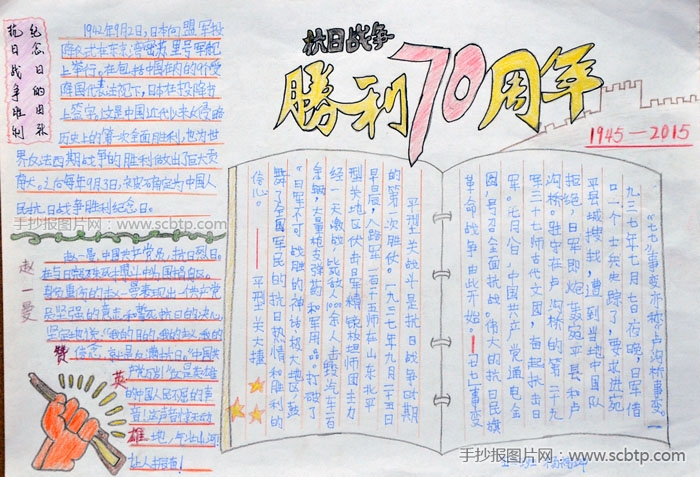 抗日战争
勝利70周年
1945—2015
纪念日的由来
抗日战争胜利
1942年9月2日,日本向盟军投
降仪式在东京湾密苏里号军舰
上举行。在包括中国在内的9个受
降国代表注视下,日本在投降书
上签字。这是中国近代以来反侵略
历史上的第一次全面胜利,也为世
界反法西期战争的胜利做出了巨大贡
每年9月3日,
民抗日战争胜利纪念日。
赵一曼
赞
英
雄
赵一曼,中国共产党员,抗日烈日。
员坚强的意志和誓死抗日的决心。
“我的目的,我的主义,我的
信念,就是反满抗日。”中国共
的中国人民不屈的声
让人振奋!
“七七”事变亦称卢沟桥事变。一
九三七年七月七日夜晚,日军借
口一个士兵失踪了,要求进宛
平县城搜找,遭到当地中国队
拒绝,日军即炮轰宛平县和卢
沟桥。驻守在卢沟桥的第二十九
军三十七师古代文团,奋起抗击日
军。七月八日,中国共产党通电全
国,号召全面抗战。伟大的抗日民族
革命战争由此开始。——七七事变
平型关战斗是抗日战争时期
的第一次胜仗。一九三七年九月二十五日
早晨,八路军一百十五师在山东北平
型关地区伏击日军精锐板坦师团主力,
经一天激战,毙敌人1000余人,击毁汽车百
余辆,大量枪支弹药和军用品。打破了
“日军不可战胜的神话,极大地区鼓
舞了全国军民的抗日热情和胜利的
信心。——平型关大捷
手抄报图片网—www.scbtp.com
手抄报图片网—www.scbtp.com